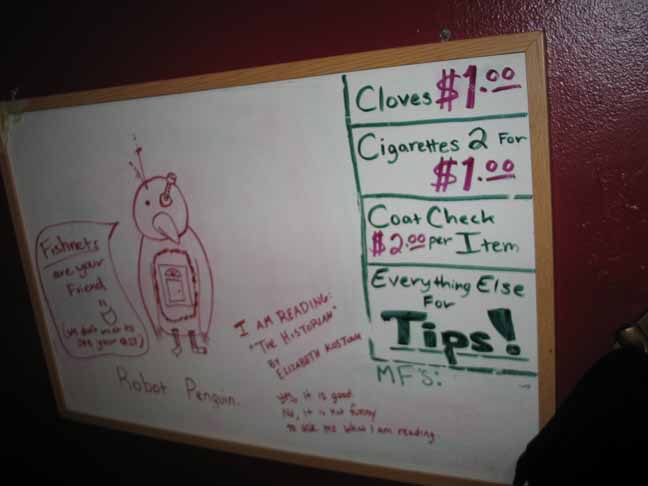 Cloves $1.00
Cigarettes 2 For
$1.00
Coat Check
$2.00 per Item
Everything Else
For
Tips!
MF's:
Fishnets
are your
Friend
(we don't want to
see your ass)
Robot Penguin...
I AM READING:
"THE HISTORIAN"
BY
ELIZABETH KOSTOVA
yes, it is good.
No, it is not funny
to ask me what I am reading.